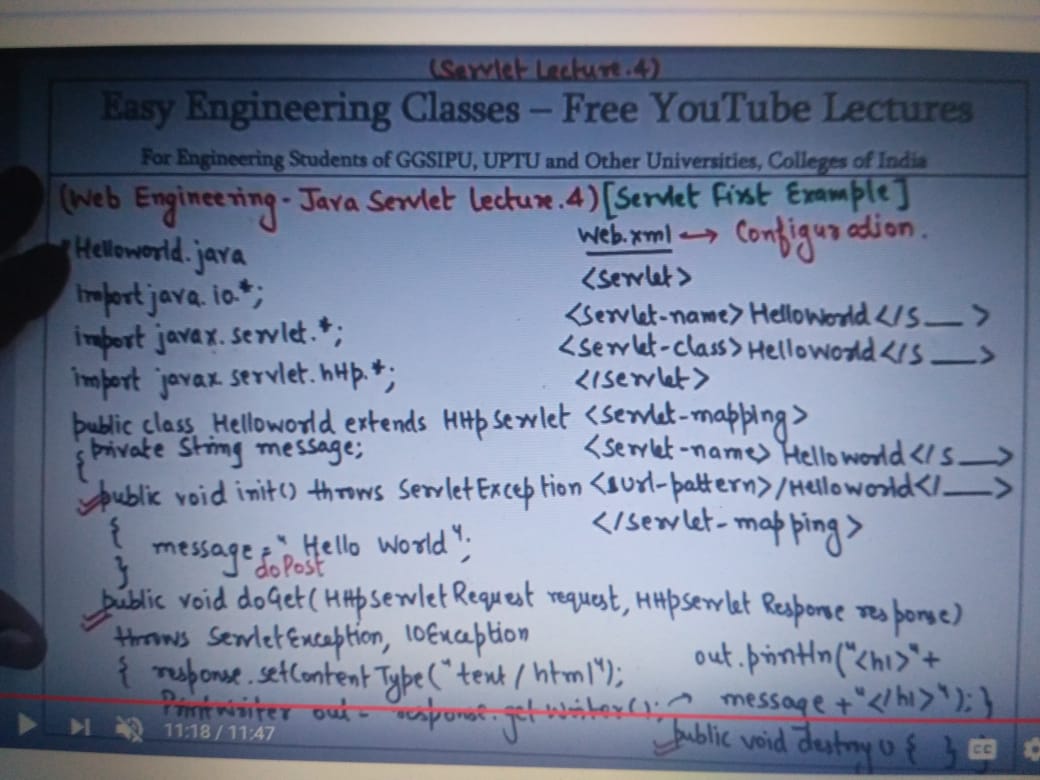 (Servlet Lecture.4)
Easy Engineering Classes – Free YouTube Lectures
For Engineering Students of GGSIPU, UPTU and Other Universities, Colleges of India
(Web Engineering - Java Servlet Lecture.4) [Servlet First Example]
Helloworld.java
import java.io.*;
import javax.servlet.*;
import javax.servlet.http.*;
public class Helloworld extends HttpServlet
{ private String message;
public void init() throws ServletException
{
message = "Hello World";
}
doPost
public void doGet(HttpServletRequest request, HttpServlet Response response)
throws ServletException, IOException
{ response.setContentType("text/html");
PrintWriter out = response.getWriter(); →
out.println("<h1>"+
message+"</h1>"); }
public void destroy() { } }
web.xml → Configuration.
<servlet>
<servlet-name> HelloWorld </s__>
<servlet-class> HelloWorld </s__>
</servlet>
<servlet-mapping>
<servlet-name> Helloworld </s__>
<url-pattern>/Helloworld</__>
</servlet-mapping>
11:18 / 11:47
CC